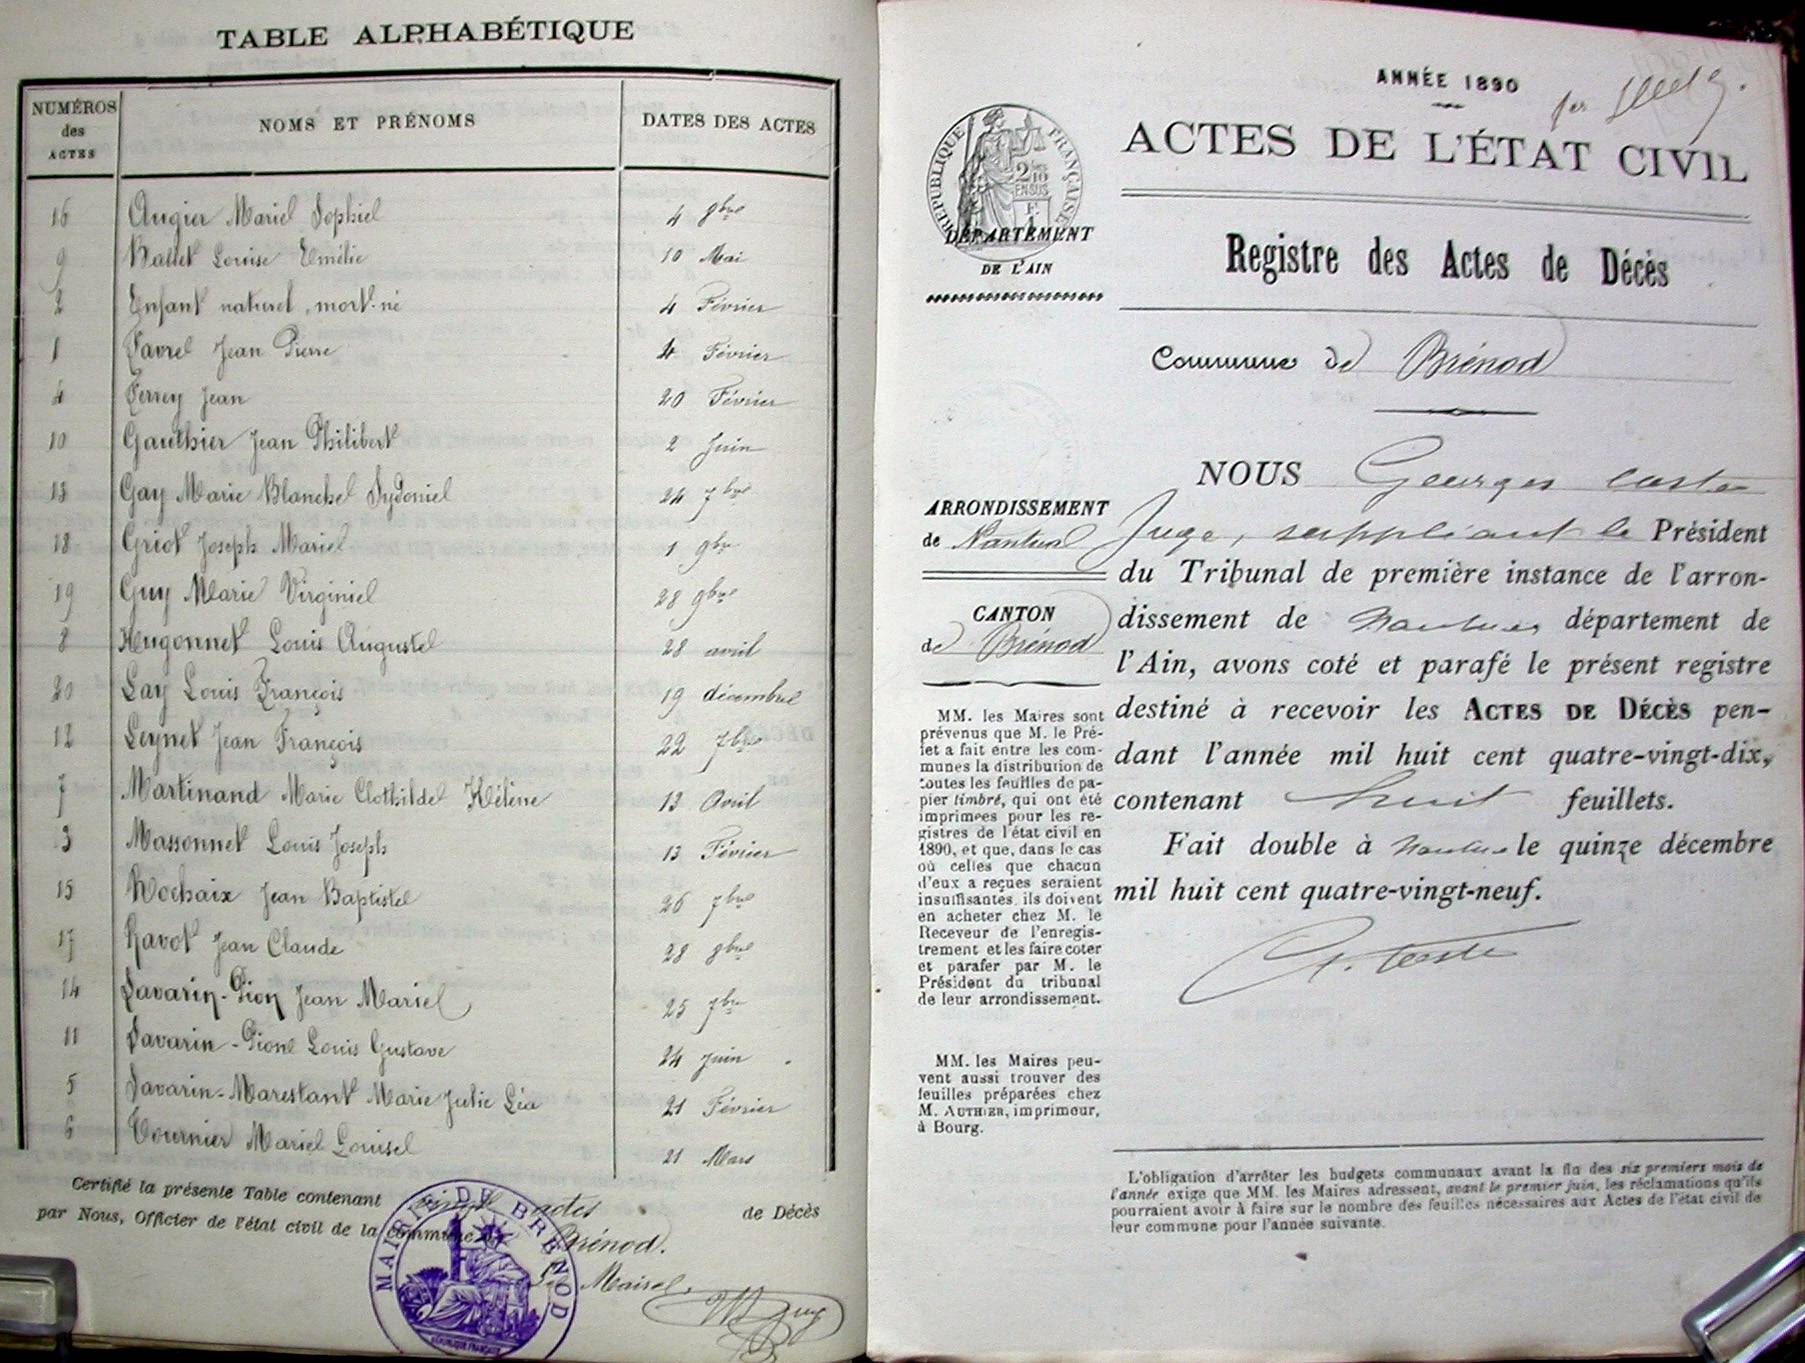 TABLE ALPHABÉTIQUE
NUMÉROS des ACTES NOMS ET PRÉNOMS DATES DES ACTES
16 Augier Marie Sophie 4 9bre
9 Ballet Louise Emélie 10 Mai
2 Enfant naturel, mort-né 4 Février
1 Favre Jean Pierre 4 Février
4 Ferrey Jean 20 Février
10 Gauthier Jean Philibert 2 Juin
13 Gay Marie Blanche Sydonie 24 7bre
18 Griot Joseph Marie 1 9bre
19 Guy Marie Virginie 28 9bre
8 Hugonnet Louis Auguste 28 avril
20 Lay Louis François 19 décembre
12 Leynet Jean François 22 7bre
7 Martinand Marie Clothilde Hélène 13 Avril
3 Massonnet Louis Joseph 13 Février
15 Rochaix Jean Baptiste 26 7bre
17 Ravot Jean Claude 28 9bre
14 Savarin-Pion Jean Marie 25 7bre
11 Savarin-Pione Louis Gustave 24 Juin
5 Savarin-Marestant Marie Julie Léa 21 Février
6 Tournier Marie Louise 21 Mars
Certifié la présente Table contenant vingt actes de Décès
par Nous, Officier de l'état civil de la commune de Brénod.
Le Maire,
Guy
MAIRIE DE BRÉNOD
RÉPUBLIQUE FRANÇAISE
ANNÉE 1890
1er
ACTES DE L'ÉTAT CIVIL
RÉPUBLIQUE FRANÇAISE
2/10 EN SUS
DÉPARTEMENT
DE L'AIN
Registre des Actes de Décès
Commune de Brénod
ARRONDISSEMENT
de Nantua
CANTON
de Brénod
MM. les Maires sont
prévenus que M. le Pré-
fet a fait entre les com-
munes la distribution de
toutes les feuilles de pa-
pier timbré, qui ont été
imprimées pour les re-
gistres de l'état civil en
1890, et que, dans le cas
où celles que chacun
d'eux a reçues seraient
insuffisantes, ils doivent
en acheter chez M. le
Receveur de l'enregis-
trement et les faire coter
et parafer par M. le
Président du tribunal
de leur arrondissement.
MM. les Maires peu-
vent aussi trouver des
feuilles préparées chez
M. AUTHIER, imprimeur,
à Bourg.
NOUS Georges
Juge, suppléant le Président
du Tribunal de première instance de l'arron-
dissement de Nantua département de
l'Ain, avons coté et parafé le présent registre
destiné à recevoir les ACTES DE DÉCÈS pen-
dant l'année mil huit cent quatre-vingt-dix,
contenant huit feuillets.
Fait double à Nantua le quinze décembre
mil huit cent quatre-vingt-neuf.
L'obligation d'arrêter les budgets communaux avant la fin des six premiers mois de
l'année exige que MM. les Maires adressent, avant le premier juin, les réclamations qu'ils
pourraient avoir à faire sur le nombre des feuilles nécessaires aux Actes de l'état civil de
leur commune pour l'année suivante.